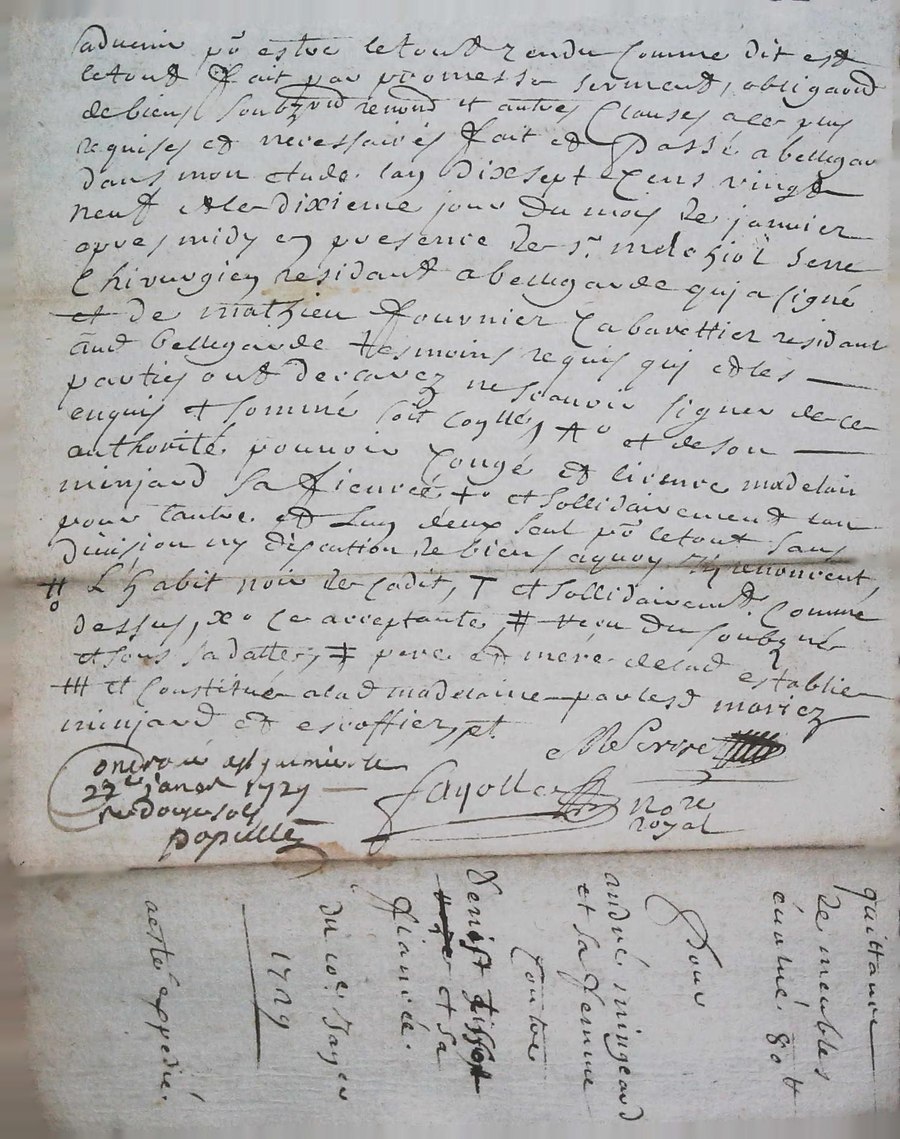 advenir po estre le tout rendu Comme dit est
le tout fait par promesse serment, obliga͠on
de biens Soubz͠on renon͠d et autres Clauses a ce plus
requises et necessaires fait et Passé a bellegar
dans mon etude lan Dix sept Cens vingt
neuf et le dixieme jour du mois de janvier
apres midy en presence de sr. melchiol serre
Chirurgien residant a bellegarde qui a signé
et de mathieu fournier Cabarettier residant
aud bellegarde tesmoins requis qui et les
parties ont declarez ne scavoir signer de ce
enquis et sommé soit Coyllé, A° et de son
authorité pouvoir Congé et licence madelain
minjard sa fiencée +° et sollidairement lun
pour lautre et lun deux seul po le tout sans
division ny discution de bien aquoy Ils renoncent
# L'habit noir de Cadit, T et sollidairemt. Comme
dessus, x° Ce acceptante, # receu du soubzné
et sous sa datte, ‡ pere et mere de lad establie
### et Constituée a lad madelaine par lesd mariez
minjard et escoffier,
M Serre
Fayolle
no re
royal
22e janer 1729
rx douze sols
papillez
quittance
de meubles
éxtimé 80 ₶
Pour
andré minjeard
et sa femme
Contre
Denist tissot
et sa
fiancée.
du 10e Janer
1729
acte expedié.